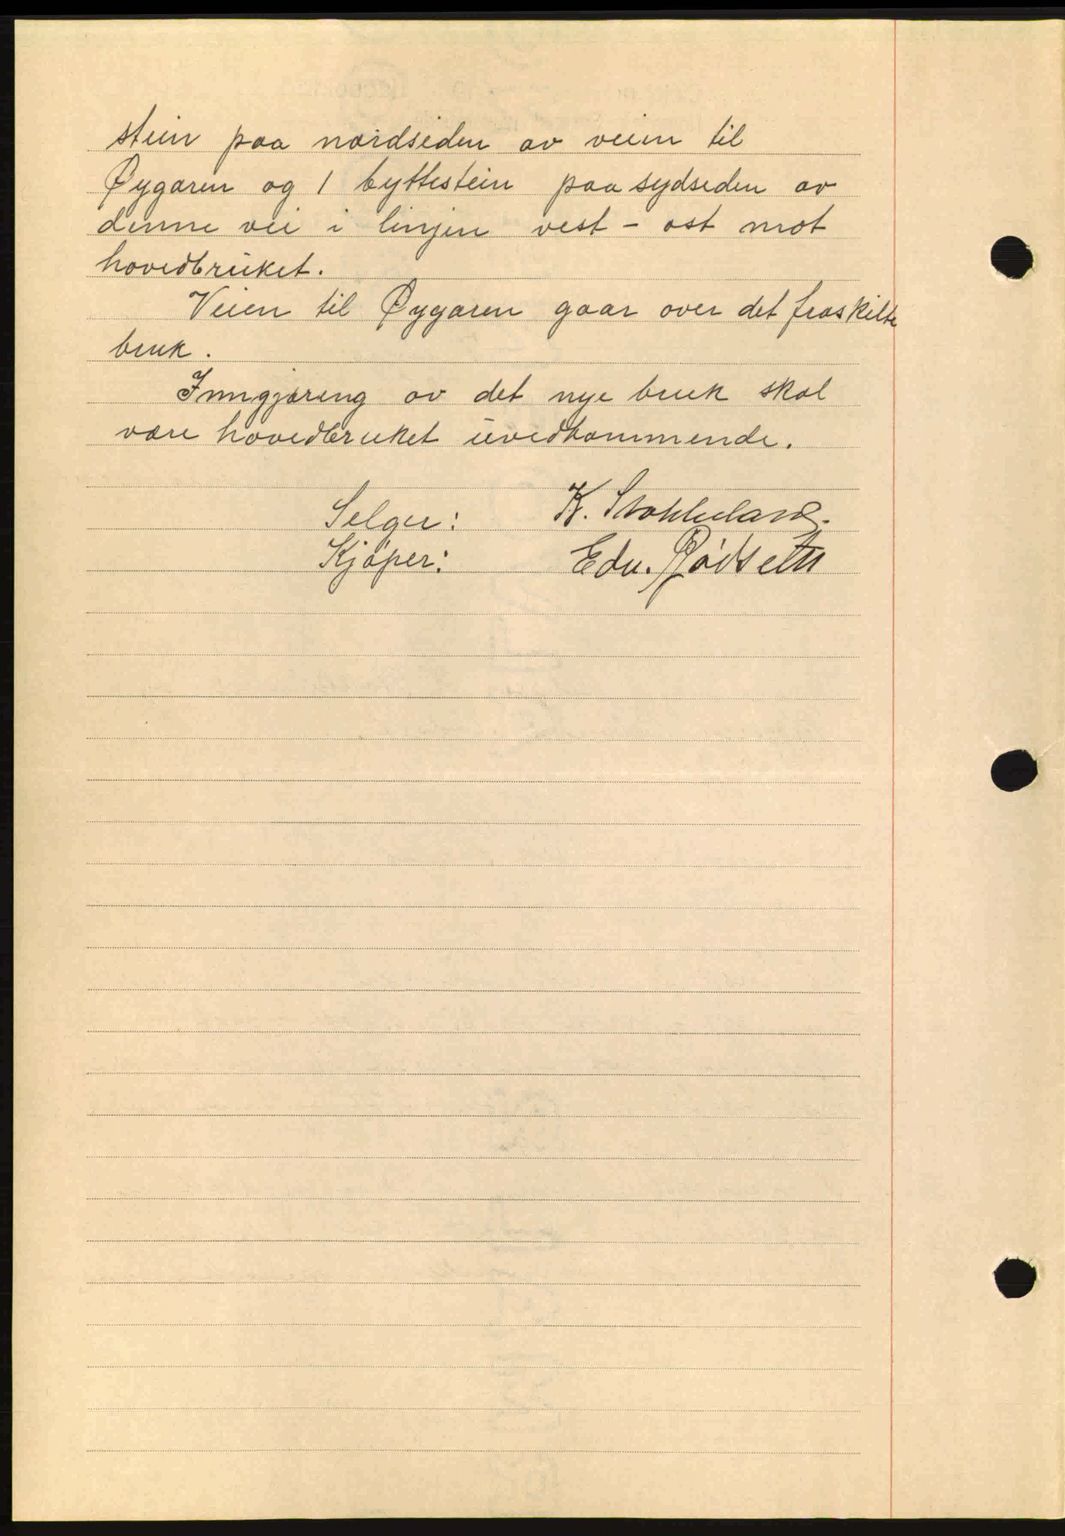 stein paa nordsiden av veien til
Øygaren og 1 byttestein paa sydsiden av
denne vei i linjen vest - øst mot
hovedbruket.
Veien til Øygaren gaar over det fraskilte
bruk.
Inngjæring av det nye bruk skal
være hovedbruket uvedkommende.
Selger: K. Stokkeland.
Kjøper: Edv. Rødseth